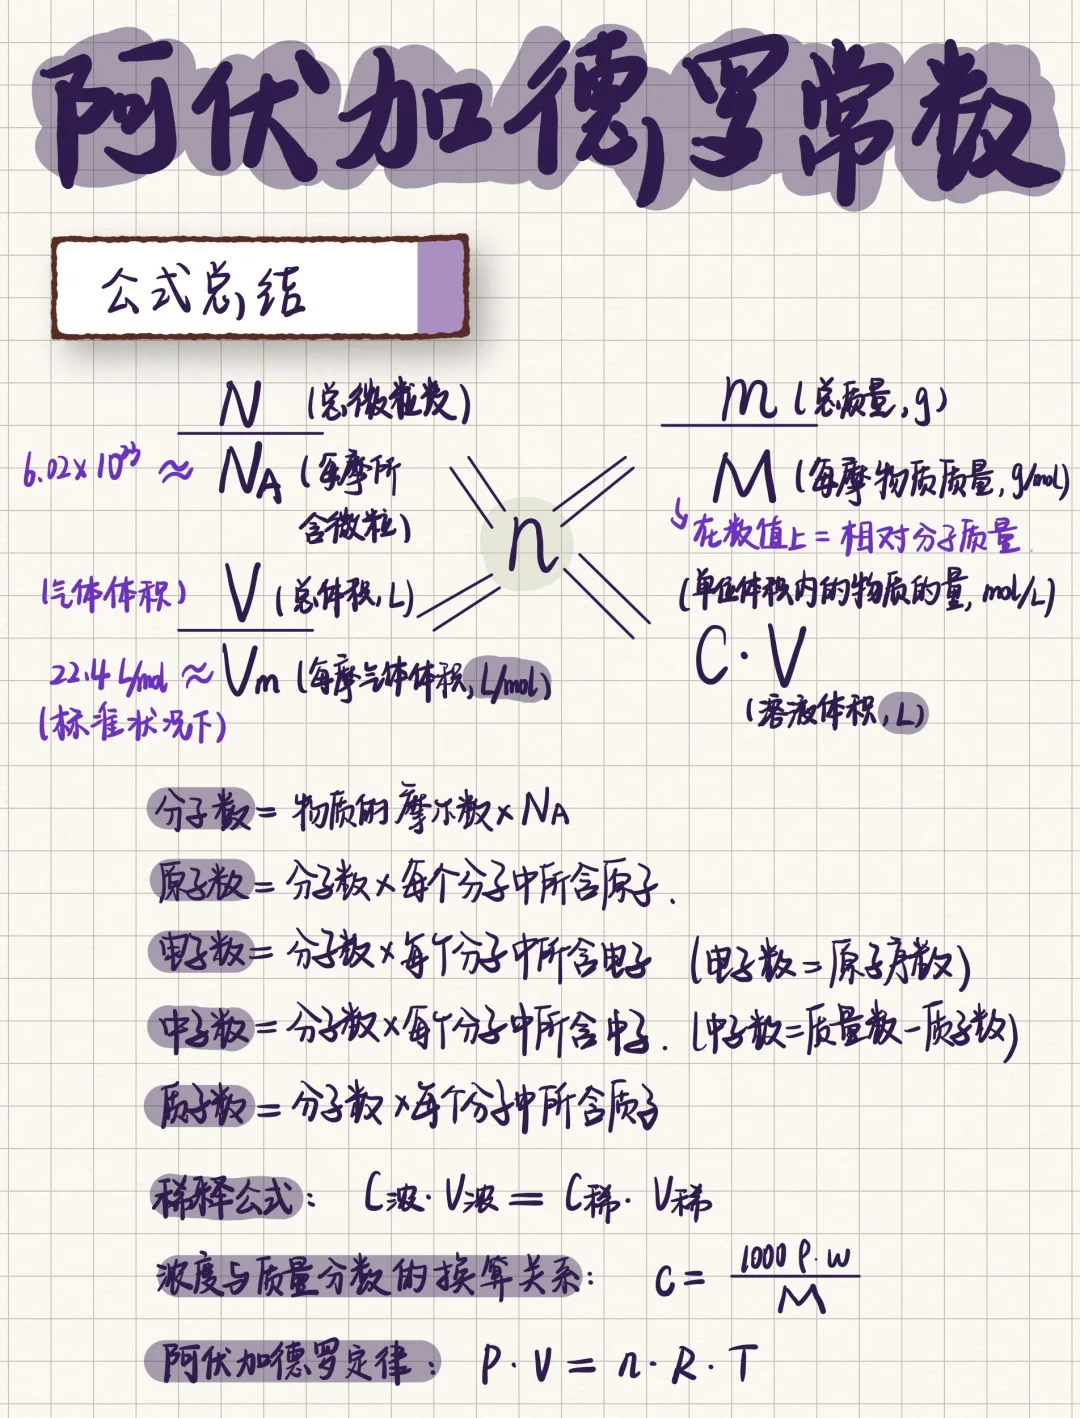 阿伏加德罗常数
公式总结
N (总微粒数)
6.02×10²³ ≈ NA (每摩所含微粒)
(气体体积) V (总体积, L)
22.4 L/mol ≈ Vm (每摩气体体积, L/mol)
(标准状况下)
n
m (总质量, g)
M (每摩物质质量, g/mol)
↳ 在数值上 = 相对分子质量.
(单位体积内的物质的量, mol/L)
C · V
(溶液体积, L)
分子数 = 物质的摩尔数 × NA
原子数 = 分子数 × 每个分子中所含原子.
电子数 = 分子数 × 每个分子中所含电子 (电子数 = 原子序数)
中子数 = 分子数 × 每个分子中所含中子. (中子数 = 质量数 - 质子数)
质子数 = 分子数 × 每个分子中所含质子
稀释公式: C浓 · V浓 = C稀 · V稀
浓度与质量分数的换算关系: c = 1000 ρ · w / M
阿伏加德罗定律: P · V = n · R · T